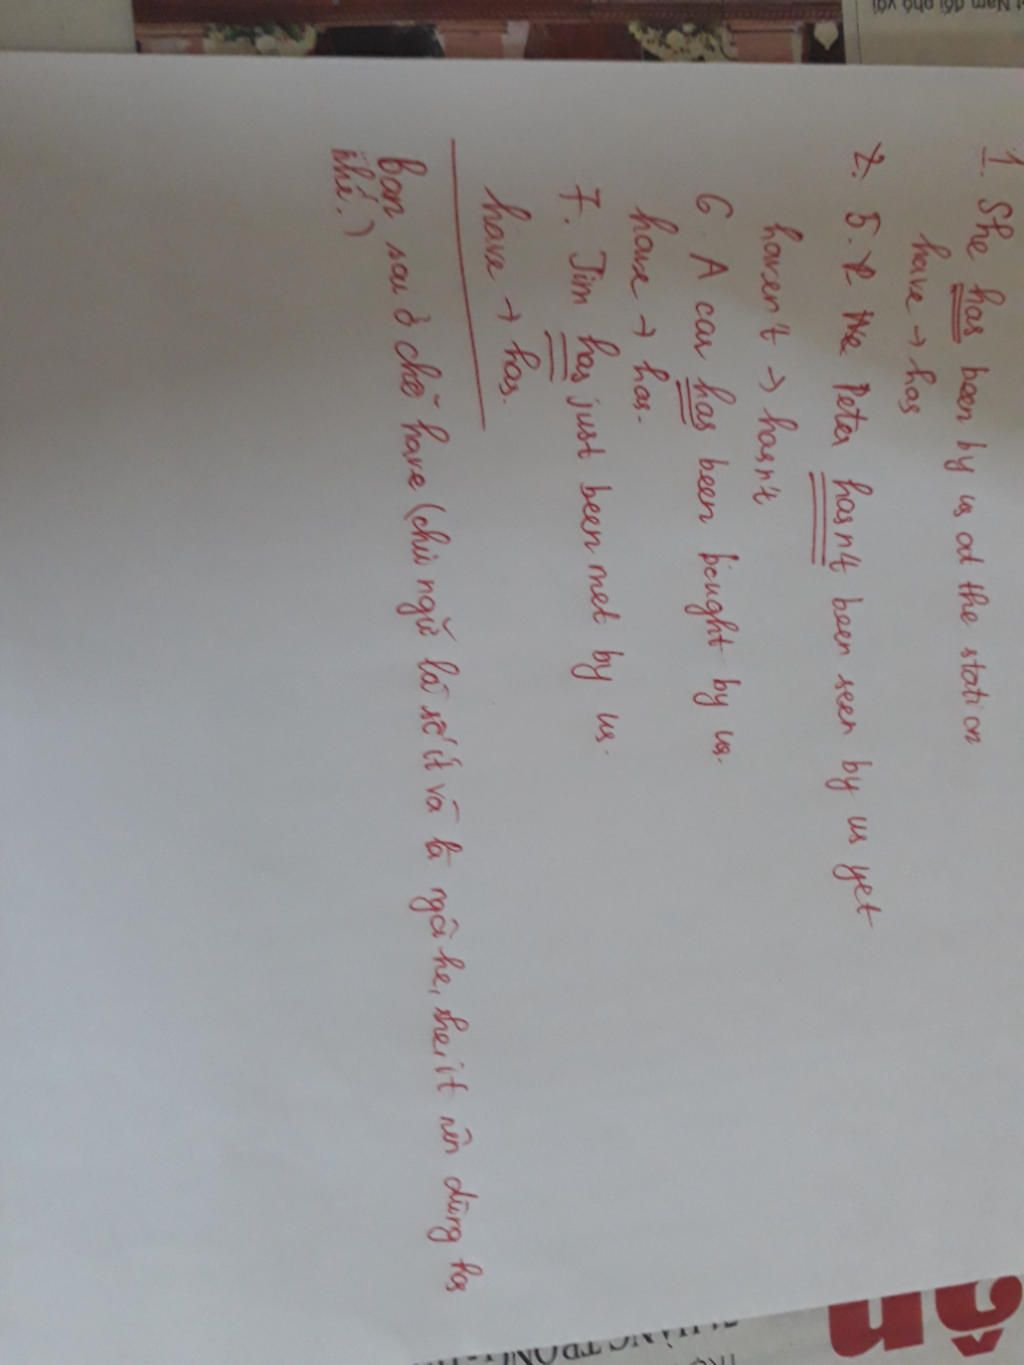 1. She has been by us at the station
have → has
2. 5. We Peter hasn't been seen by us yet
haven't → hasn't
6. A car has been bought by us.
have → has.
7. Jim has just been met by us.
have → has.
Bạn sai ở chỗ have (chủ ngữ là số ít và là ngôi he, she, it nên dùng has
nhé.)
ân